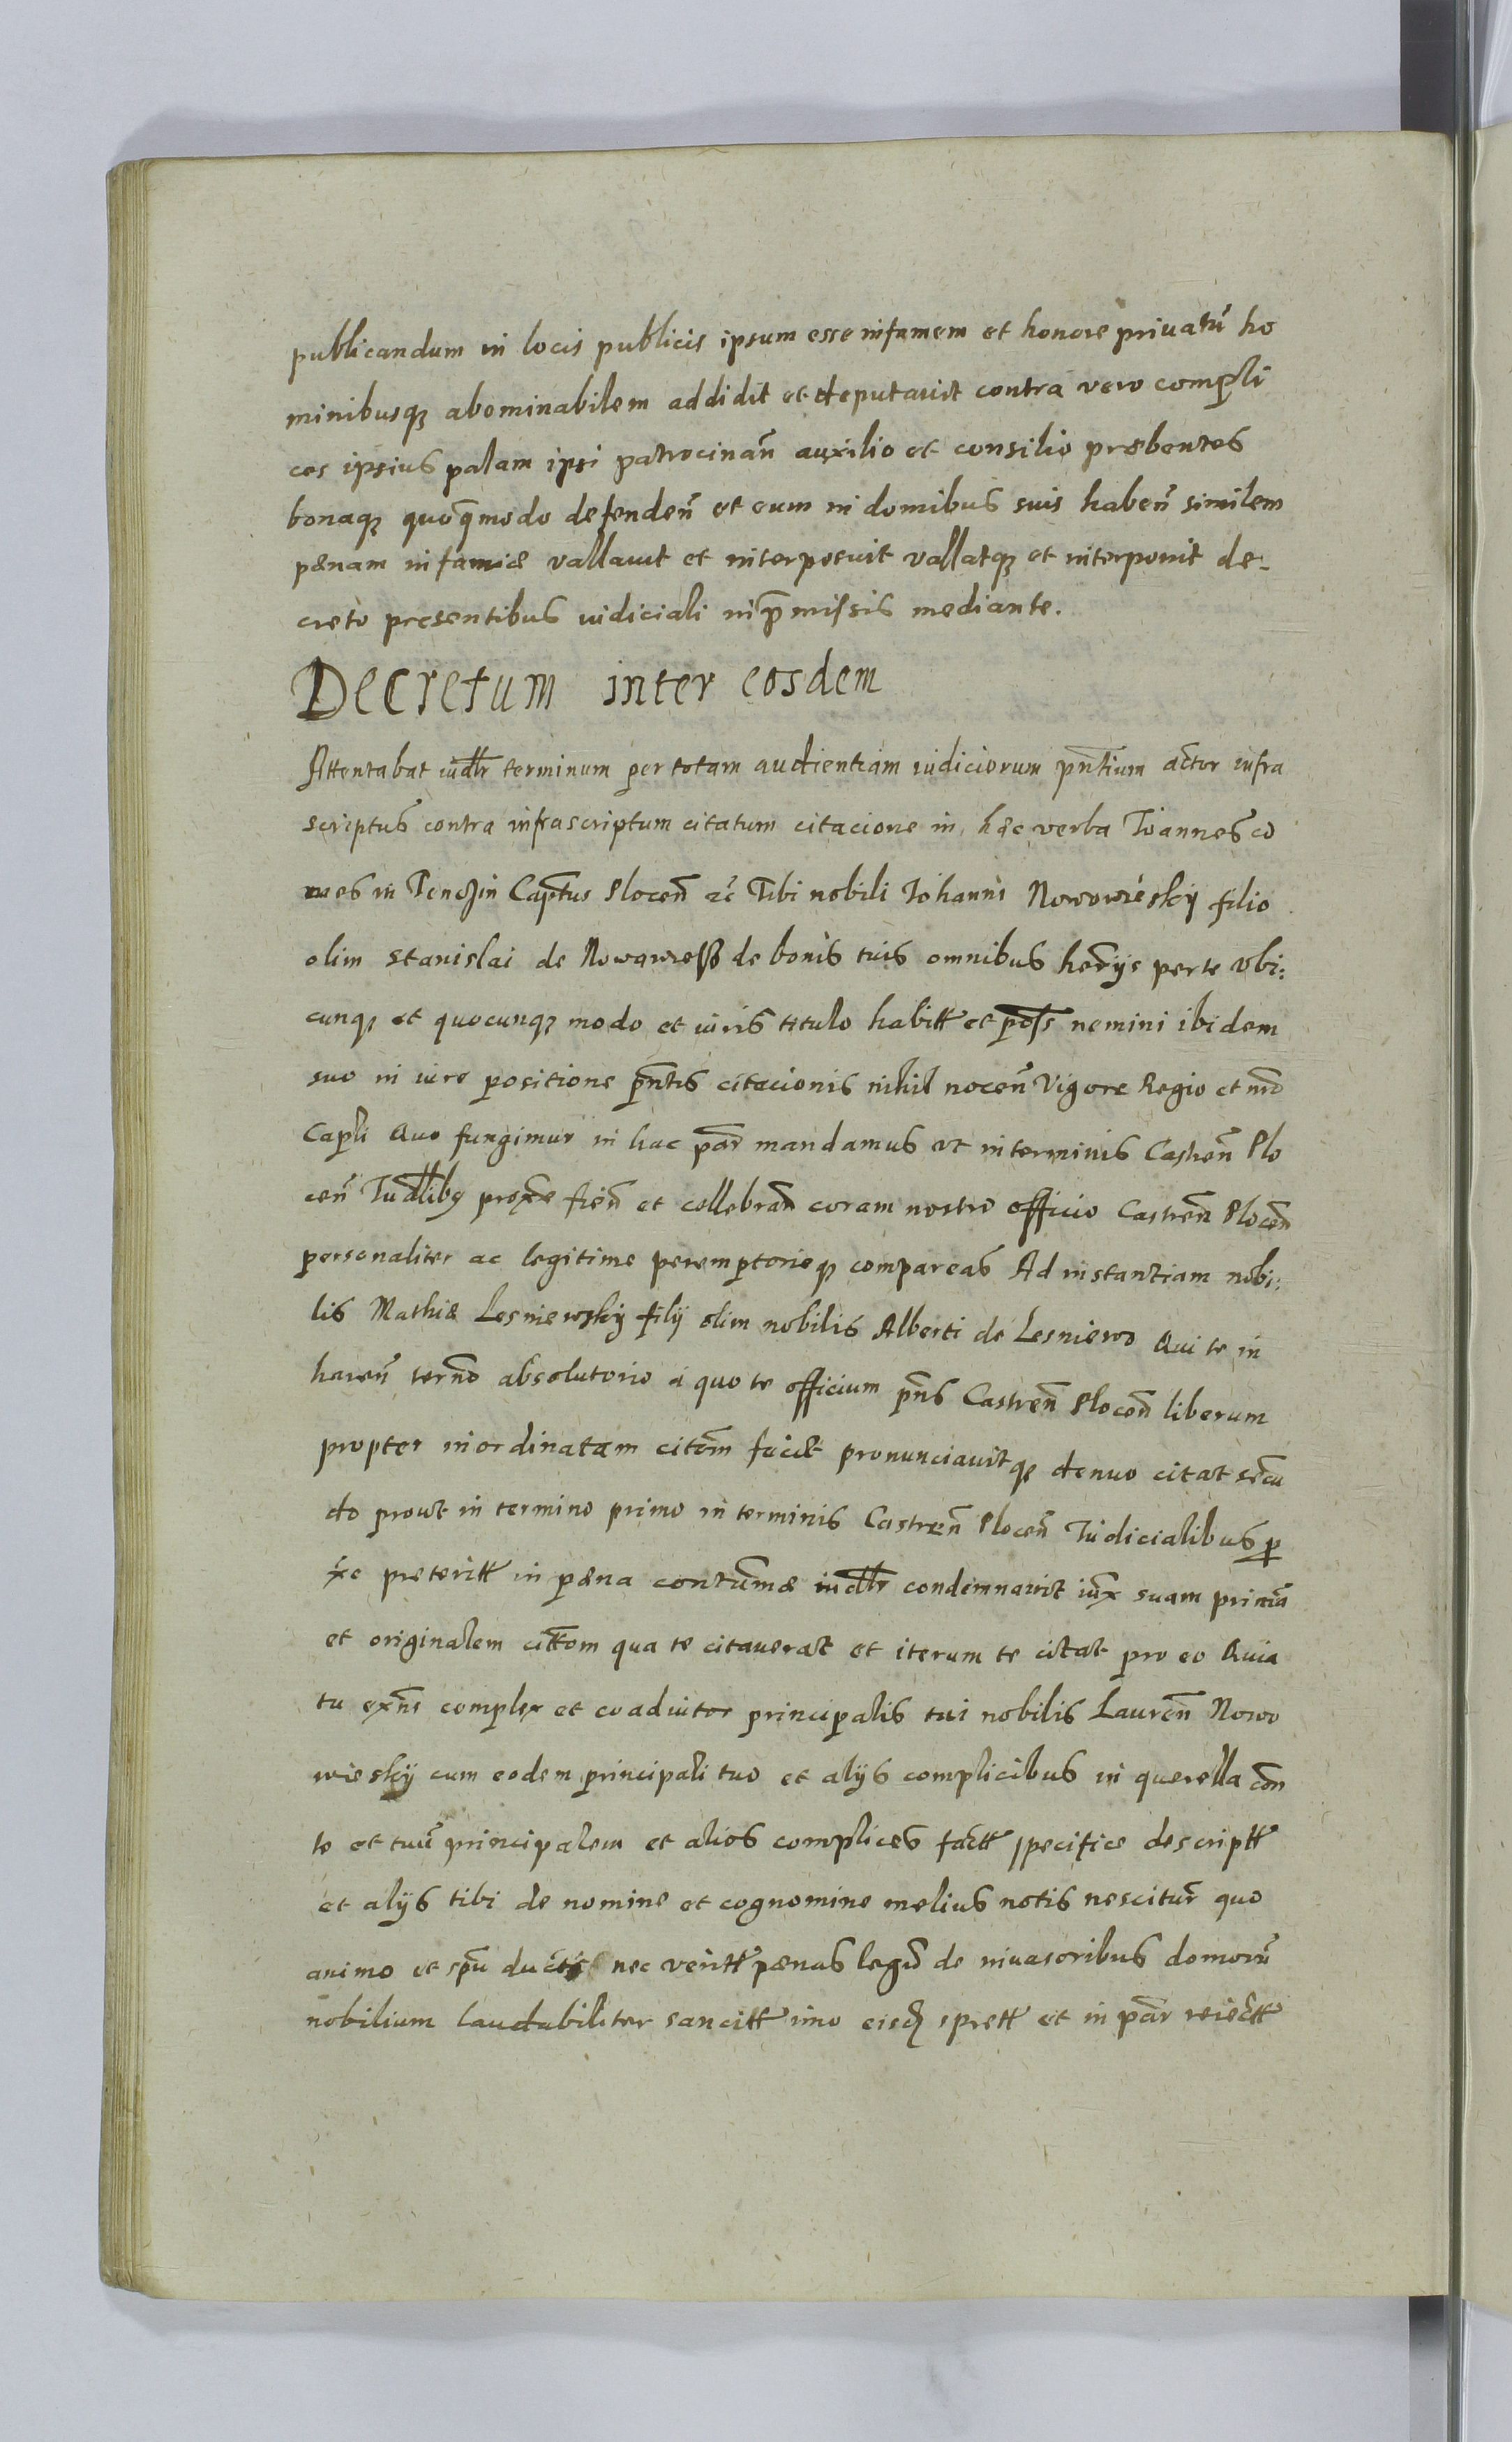 publicandum in locis publicis ipsum esse infamem et honore priuatũ ho
minibusq; abominabilem addidit et deputauit contra vero compli
ces ipsius palam ipsi patrocinañ auxilio et consilio præbentes
bonaq; quoq̃modo defendeñ et eum in domibus suis habeñ similem
pænam infamiæ vallauit et interposuit vallatq; et interponit de-
creto presentibus iudiciali in p̃missis mediante.
Decretum inter eosdem
Attentabat iudłr terminum per totam audientiam iudiciorum pñtium actor infra
scriptus contra infrascriptum citatum citacione in hæc verba Joannes co
mes in Tenczin Capt̃us Ploceñ etc̃ Tibi nobili Johanni Nowowiesky filio
olim Stanislai de Nowawiesß de bonis tuis omnibus heр̃ijs per te vbi:
cunq; et quocunq; modo et iuris titulo habitt et poss nemini ibidem
suo in iure positione pñtis citacionis nihil noceñ Vigore Regio et nr̃o
Capłi Quo fungimur in hac par̃ mandamus vt in terminis Castreñ Plo
ceñ Judłibq prox̃e fieñ et cellebrañ coram nostro officio Castreñ Ploceñ
personaliter ac legitime peremptorieq; compareas Ad instantiam nobi:
lis Mathiæ Lesniewsky filij olim nobilis Alberti de Lesniewo Qui te in
hæreñ term̃o absolutorio a quo te officium pñs Castreñ Ploceñ liberum
propter inordinatam citõm fecit pronunciauitq; denuo citat secũ
do prout in termino primo in terminis Castreñ Ploceñ Judicialibus p
xe preteritt in pæna contum̃æ iudłr condemnauit iux̃ suam primã
et originalem cittõm qua te citauerat et iterum te citat pro eo Quia
tu exñs complex et coadiutor principalis tui nobilis Laureñ Nowo
wiesky cum eodem principali tuo et alijs complicibus in querella con̄
te et tuũ principalem et alios complices factt specifice descriptt
et alijs tibi de nomine et cognomine melius notis nescitur quo
animo et spũ ductis nec veritt pænas legũ de inuasoribus domorũ
nobilium laudabiliter sancitt imo eisd; sprett et in par̃ reiectt